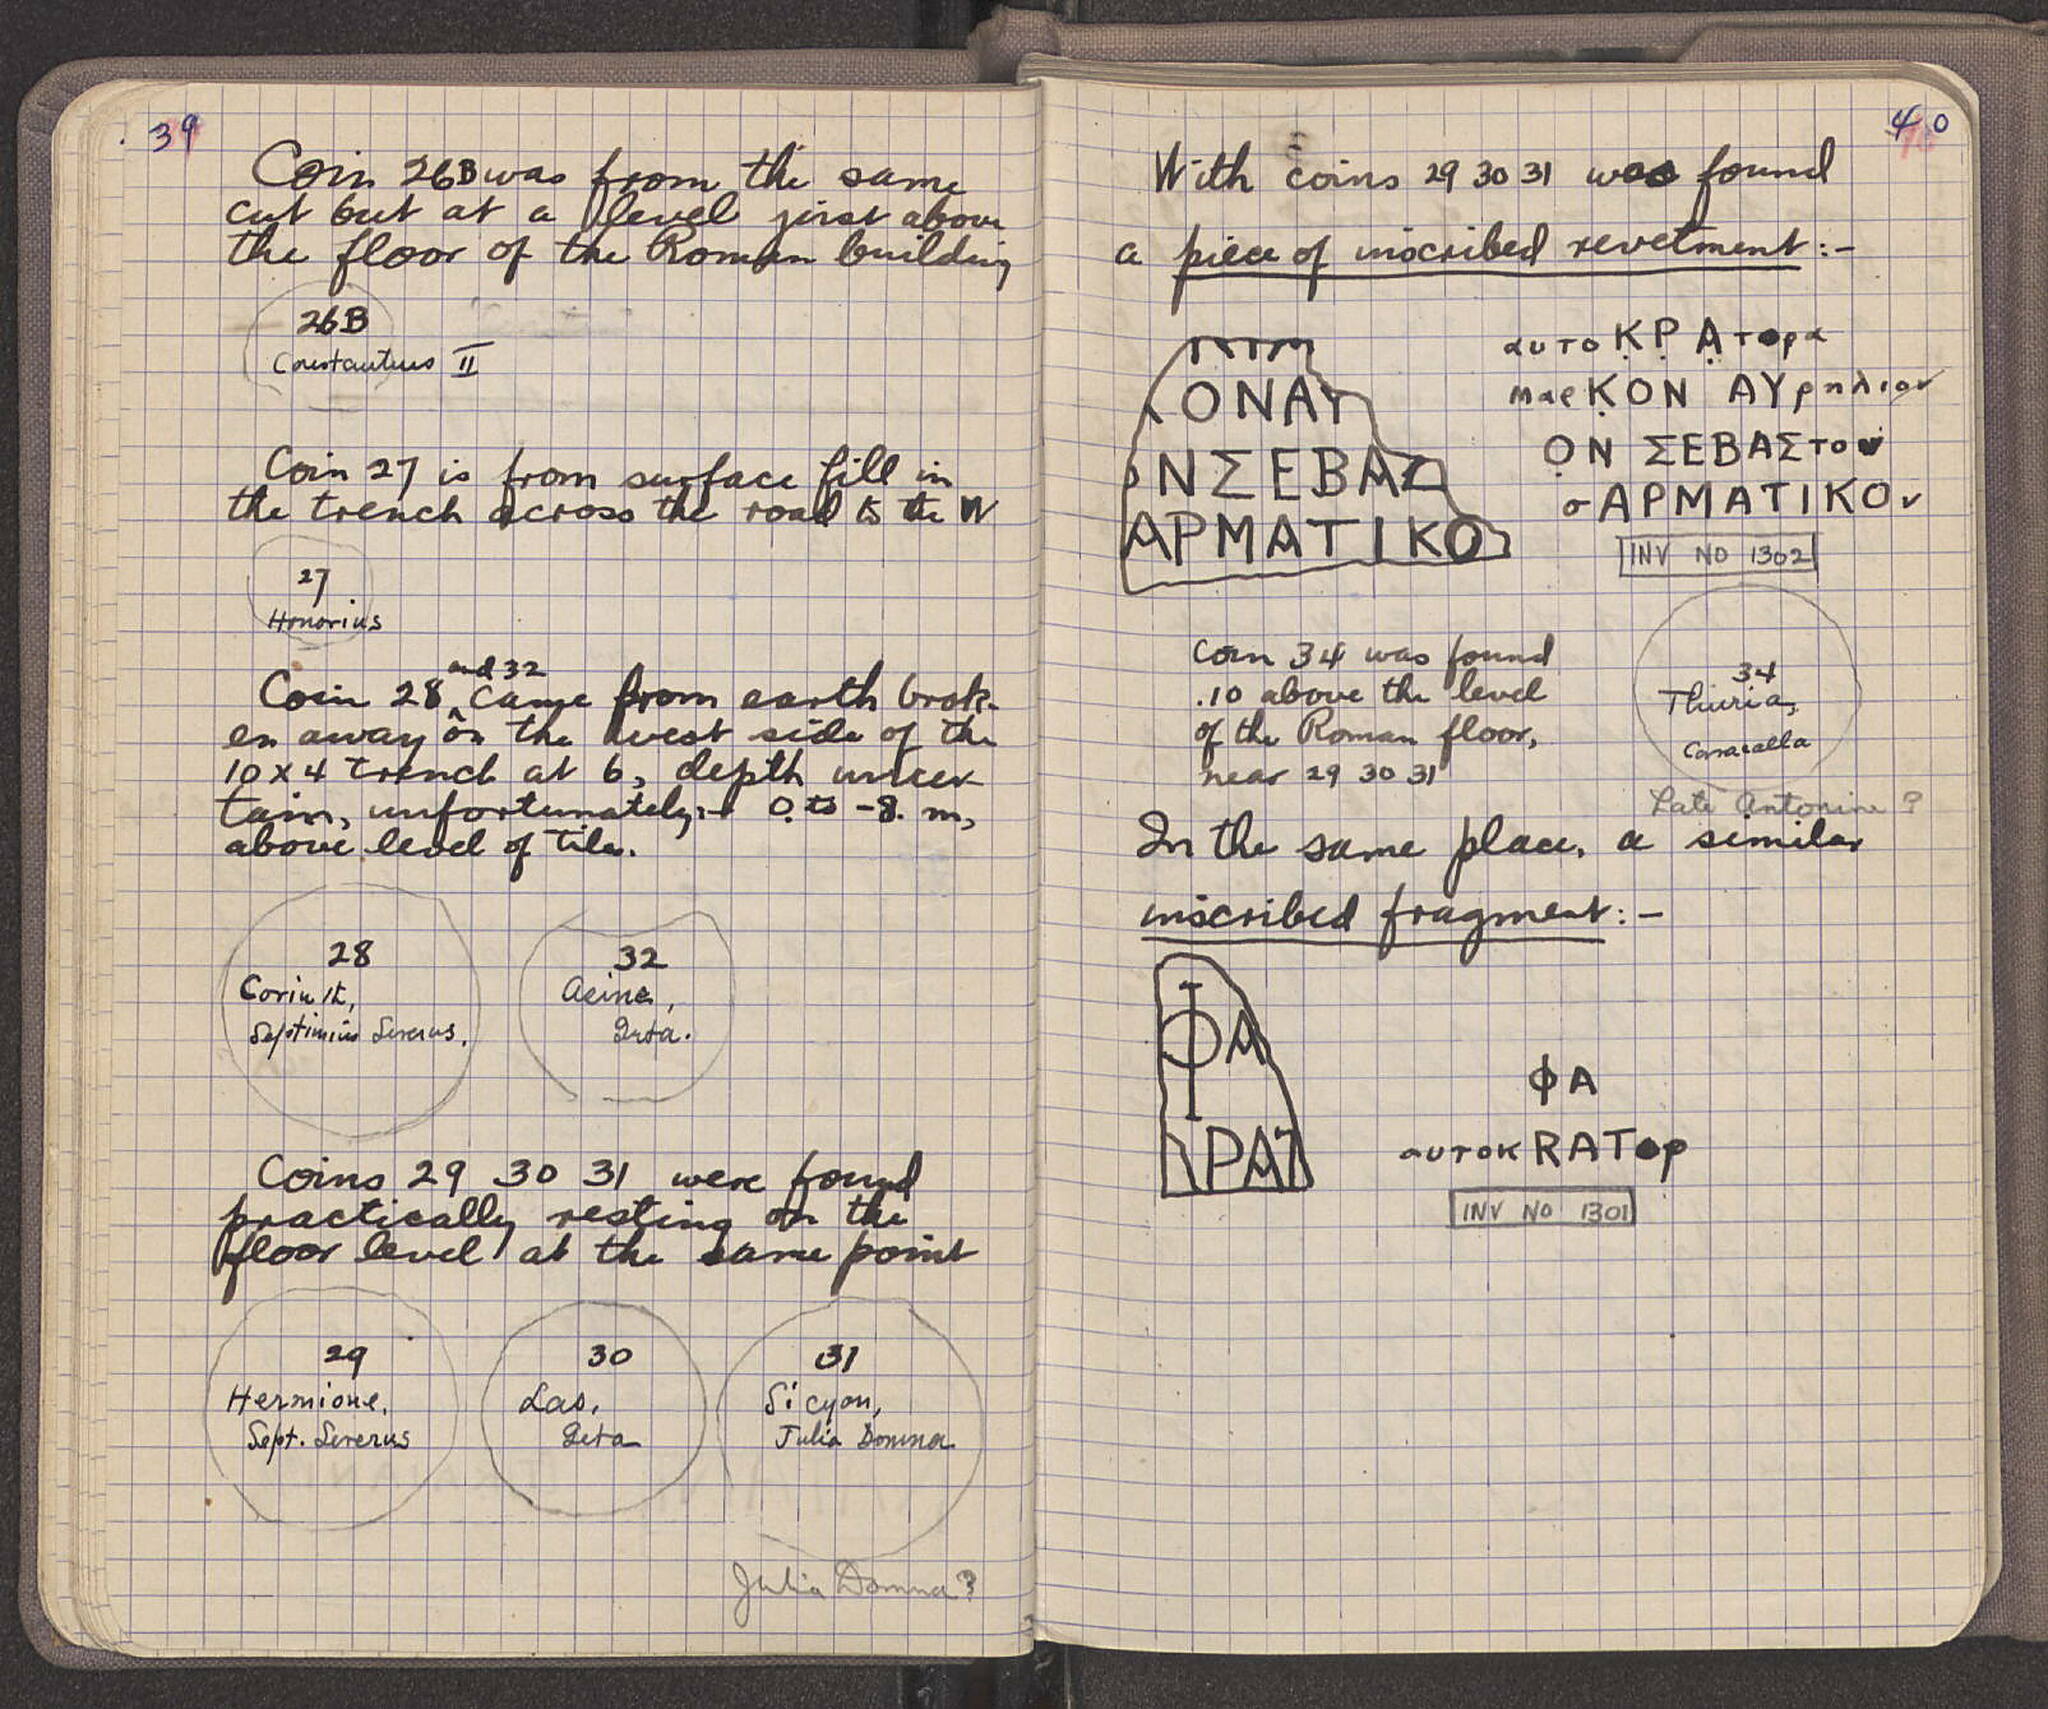 39
Coin 26B was from the same
cut but at a level just above
the floor of the Roman building
26B
Constantius II
Coin 27 is from surface fill in
the trench across the road to the W
27
Honorius
and 32
Coin 28 ^ came from earth brok-
en away on the west side of the
10 x 4 trench at 6, depth uncer-
tain, unfortunately:- 0. to -8. m,
above level of tile.
28
Corinth,
Septimius Severus.
32
Asine,
Geta.
Coins 29 30 31 were found
practically resting on the
floor level at the same point
29
Hermione,
Sept. Severus
30
Las,
Geta
31
Sicyon,
Julia Domna
Julia Domna?
40
With coins 29 30 31 was found
a piece of inscribed revetment:-
ΚΟΝΑΥ
ΟΝΣΕΒΑΣ
ΑΡΜΑΤΙΚΟ
αυτοΚ̣Ρ̣Α̣τορα
μαρΚ̣ΟΝ ΑΥρηλιον
Ο̣Ν ΣΕΒΑΣτον
σΑΡΜΑΤΙΚΟν
INV NO 1302
Coin 34 was found
.10 above the level
of the Roman floor,
near 29 30 31
34
Thuria,
Caracalla
Late Antonine?
In the same place, a similar
inscribed fragment:-
ΦΑ
ΚΡΑΤ
ΦΑ
αυτοκRATορ
INV NO 1301